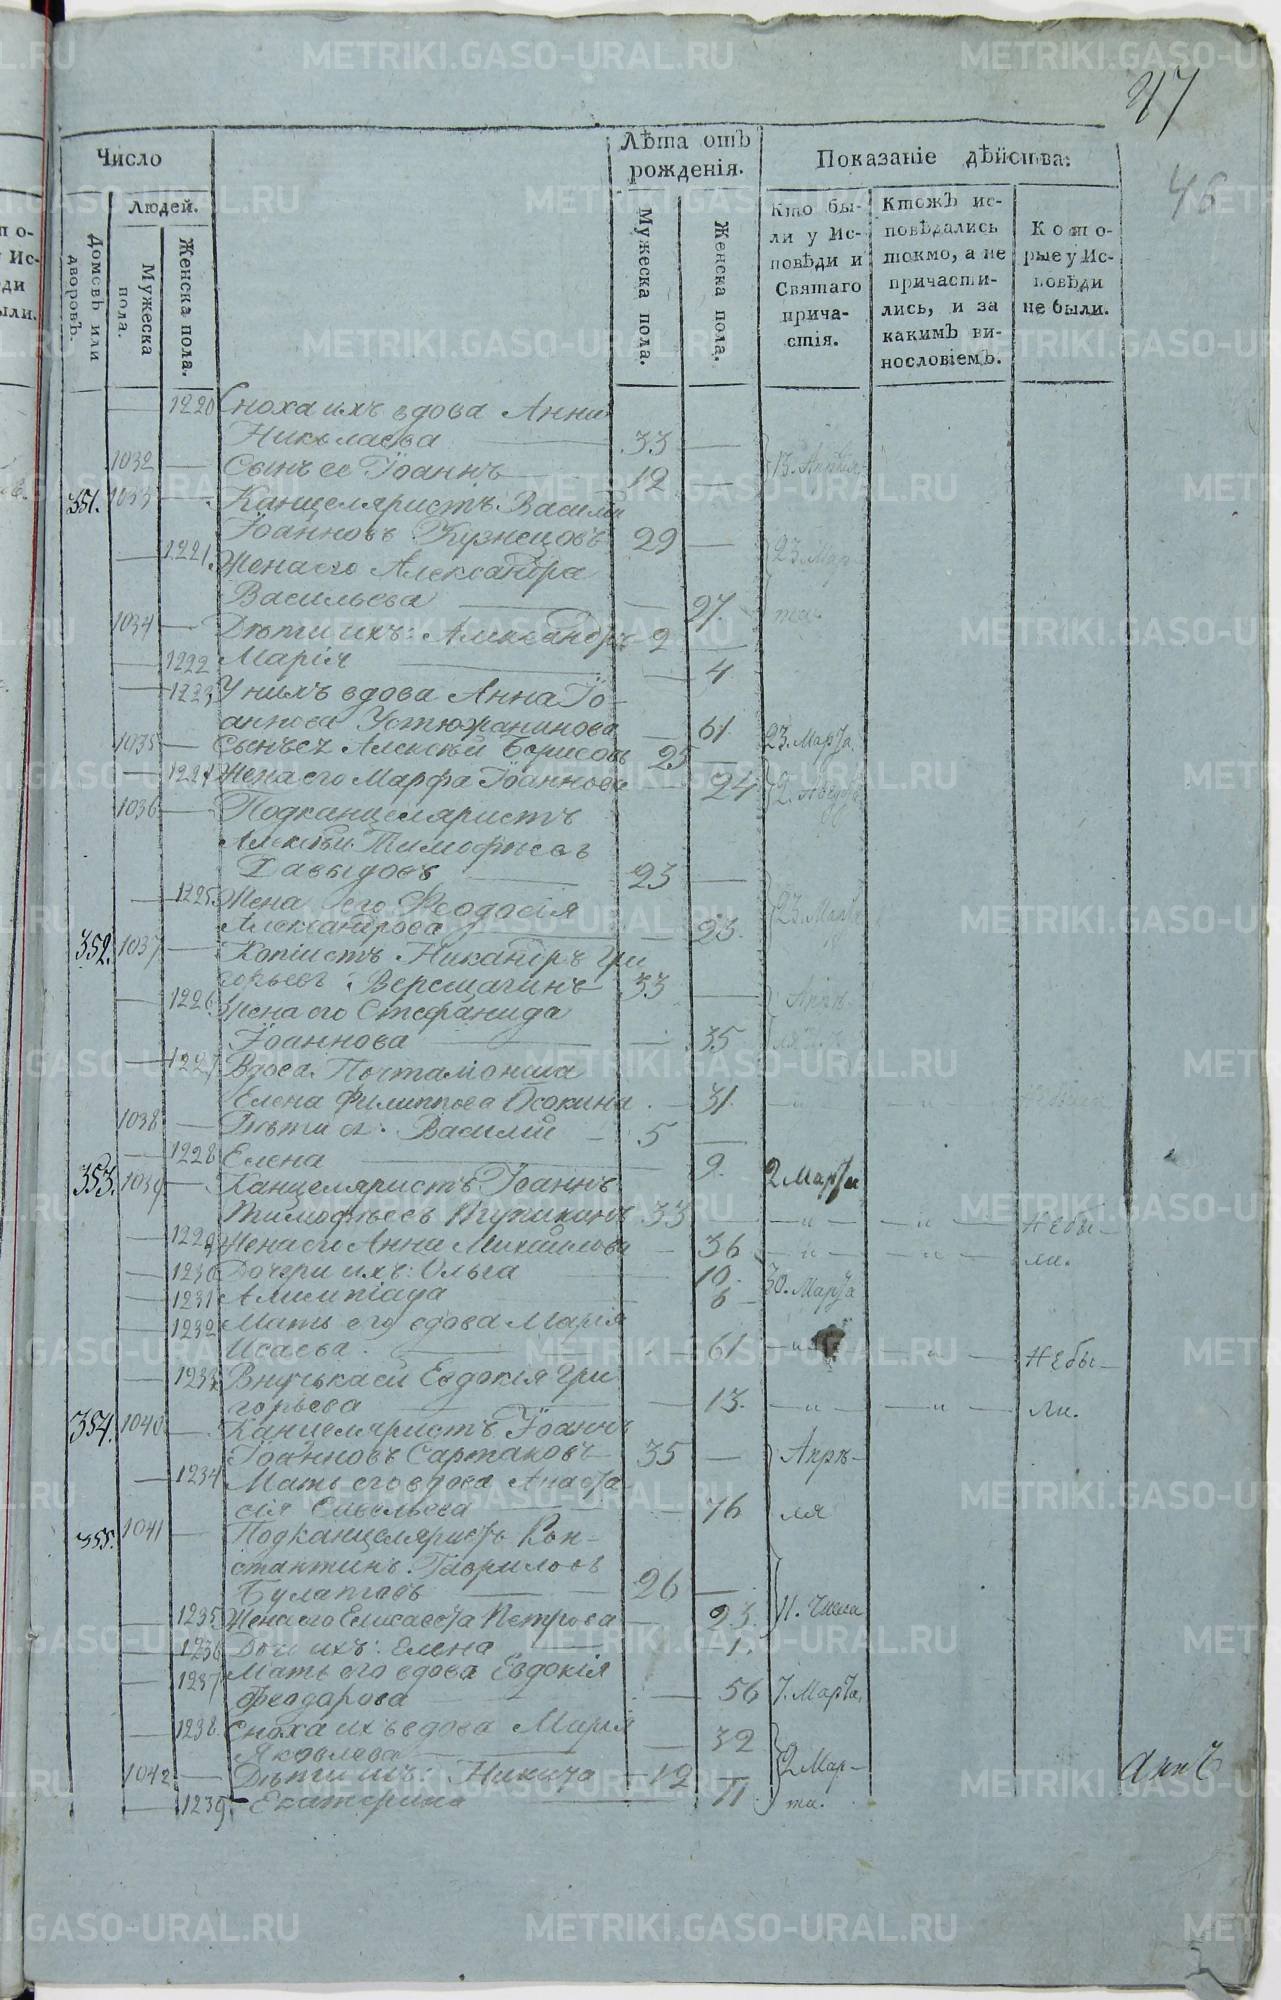 47
46
Число
Лѣта отъ рожденія.
Показаніе дѣйства:
Людей.
Домовъ или дворовъ.
Мужеска пола.
Женска пола.
Мужеска пола.
Женска пола.
Кто бы-
ли у Ис-
повѣди и
Святаго
прича-
стія.
Ктожъ ис-
повѣдались
токмо, а не
причасти-
лись, и за
какимъ ви-
нословіемъ.
Кото-
рые у Ис-
повѣди
не были.
1220 Сноха ихъ вдова Анна
Николаева 33
1032 Сынъ ее Іоаннъ 12 13. Апрѣля
351. 1033 Канцеляристъ Василий
Іоанновъ Кузнецовъ 29 23. Мар-
1221 Жена его Александра
Васильева 27. та
1034 Дѣти ихъ: Александръ 2
1222 Марія 4
1223 У нихъ вдова Анна Іо-
аннова Устюжанинова 61 23. Марта
1035 Сынъ ея Алексѣй Борисовъ 25
1224 Жена его Марфа Іоаннова 24
1036 Подканцеляристъ
Алексѣй Тимофѣевъ
Давыдовъ 23
1225 Жена его Феодосія 23. Марта
Александрова 23.
352. 1037 Копіистъ Никандръ Гри
горьевъ Верещагинъ 33 Апрѣ-
1226 Жена его Стефанида
Іоаннова 35 ля
1227 Вдова
Елена Филиппова Осокина 31. — и — — и —
1038 Дѣти ея: Василий 5
1228 Елена 9. 2 Марта
353. 1039 Канцеляристъ Іоаннъ
Тимофѣевъ 33 — и — — и — Небы-
1229 Жена его Анна Михайлова 36 — и — — и — ли.
1230 Дочери ихъ: Ольга 10. 30. Марта
1231 6
1232 Мать его вдова Марія
Исаева 61 — и — — и — Небы-
1233 Внучька ей Евдокія Гри
горьева 13. — и — — и — ли.
354. 1040 Канцеляристъ Іоаннъ
Іоанновъ Сартаковъ 35 Апрѣ-
1234 Мать его вдова Анаста
сія Савельева 76 ля
355. 1041 Подканцеляристъ Кон-
стантинъ Гавриловъ
Булатовъ 26
1235 Жена его Елисавета Петрова 23. 11. Числа
1236 Дочь ихъ: Елена 1.
1237 Мать его вдова Евдокія
Феодорова 56 7. Марта.
1238. Сноха ихъ вдова Марія
Яковлева 32
1042 Дѣти ихъ: Никита 12 2 Мар-
1239. Екатерина 11 та.
METRIKI.GASO-URAL.RU